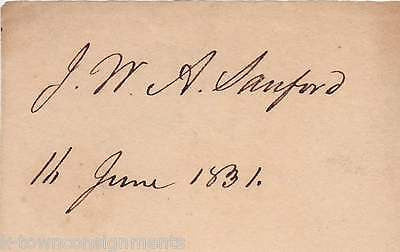 J. W. A. Sanford
14 June 1831.
k-townconsignments